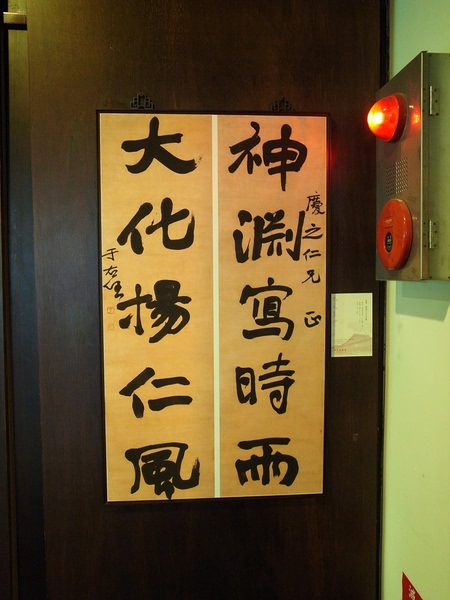 神淵寫時雨
慶之仁兄 正
大化揚仁風
于右任